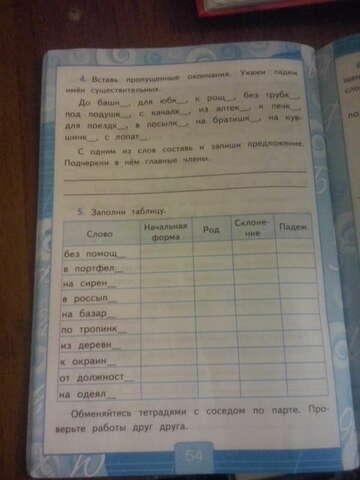 4. Вставь пропущенные окончания. Укажи падеж
имён существительных.
До башн__, для юбк__, к рощ__, без трубк__,
под подушк__, с каналк__, из аптек__, к печк__,
для поездк__, в посылк__, на братишк__, на кув-
шинк__, с лопат__.
С одним из слов составь и запиши предложение.
Подчеркни в нём главные члены.
5. Заполни таблицу.
Слово Начальная форма Род Склоне-ние Падеж
без помощ__
в портфел__
на сирен__
в россып__
на базар__
по тропинк__
из деревн__
к окраин__
от должност__
на одеял__
Обменяйтесь тетрадями с соседом по парте. Про-
верьте работы друг друга.
54